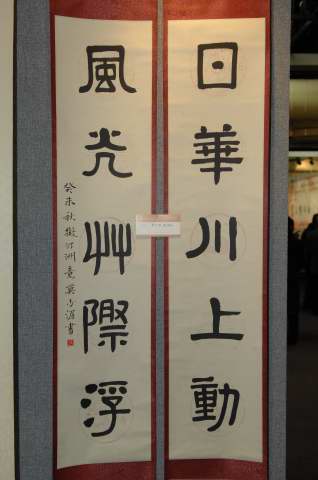 日華川上動
風光艸際浮
癸未秋擬汀洲意莫小不書